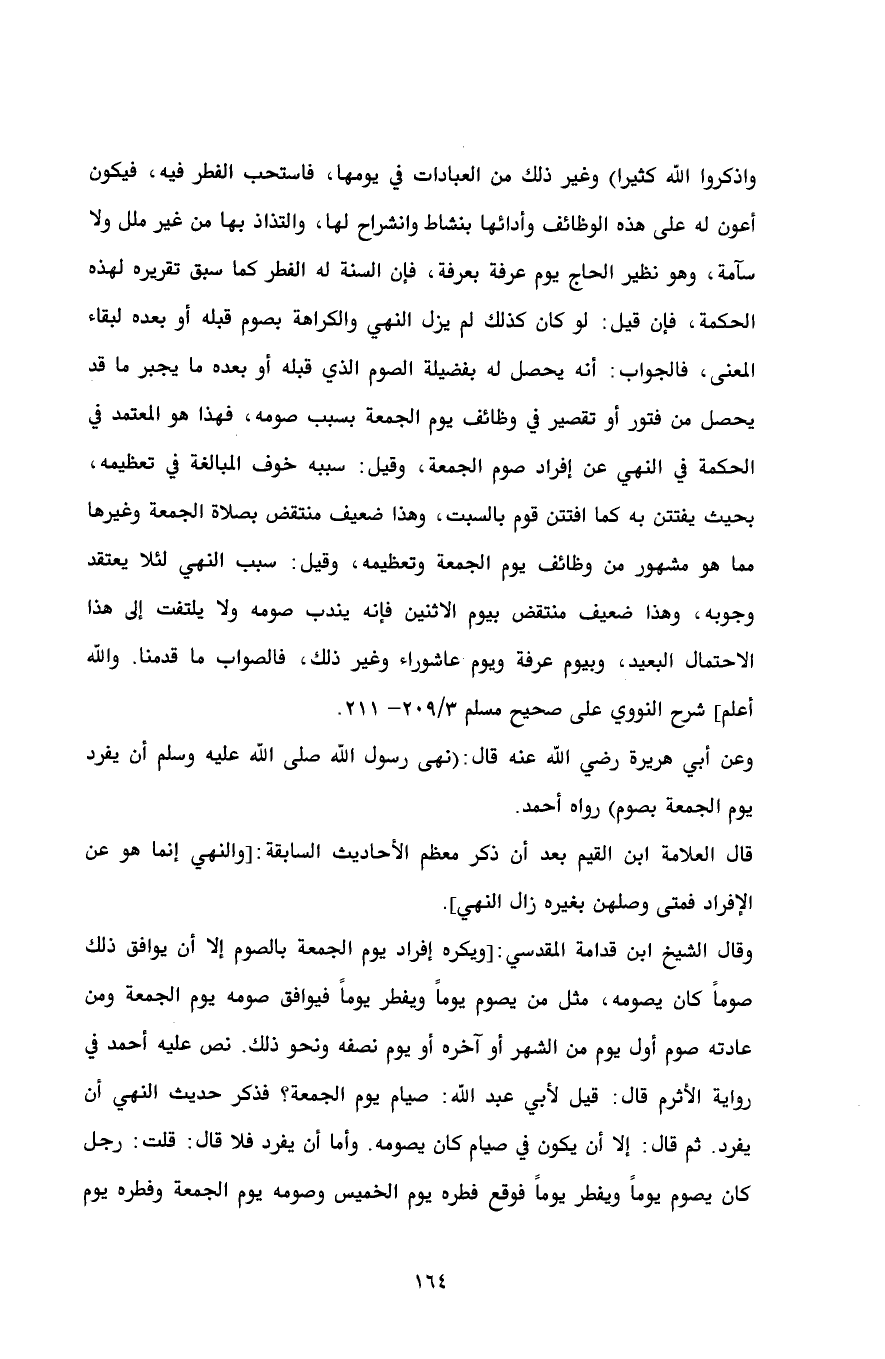 واذكروا الله كثيرا) وغير ذلك من العبادات في يومها، فاستحب الفطر فيه، فيكون
أعون له على هذه الوظائف وأدائها بنشاط وانشراح لها، والتذاذ بها من غير ملل ولا
سآمة، وهو نظير الحاج يوم عرفة بعرفة، فإن السنة له الفطر كما سبق تقريره لهذه
الحكمة، فإن قيل: لو كان كذلك لم يزل النهي والكراهة بصوم قبله أو بعده لبقاء
المعنى، فالجواب: أنه يحصل له بفضيلة الصوم الذي قبله أو بعده ما يجبر ما قد
يحصل من فتور أو تقصير في وظائف يوم الجمعة بسبب صومه، فهذا هو المعتمد في
الحكمة في النهي عن إفراد صوم الجمعة، وقيل: سببه خوف المبالغة في تعظيمه،
بحيث يفتتن به كما افتتن قوم بالسبت، وهذا ضعيف منتقض بصلاة الجمعة وغيرها
مما هو مشهور من وظائف يوم الجمعة وتعظيمه، وقيل: سبب النهي لئلا يعتقد
وجوبه، وهذا ضعيف منتقض بيوم الاثنين فإنه يندب صومه ولا يلتفت إلى هذا
الاحتمال البعيد، وبيوم عرفة ويوم عاشوراء وغير ذلك، فالصواب ما قدمنا. والله
أعلم] شرح النووي على صحيح مسلم ٢٠٩/٣- ٢١١.
وعن أبي هريرة رضي الله عنه قال:(نهى رسول الله صلى الله عليه وسلم أن يفرد
يوم الجمعة بصوم) رواه أحمد.
قال العلامة ابن القيم بعد أن ذكر معظم الأحاديث السابقة:[والنهي إنما هو عن
الإفراد فمتى وصلهن بغيره زال النهي].
وقال الشيخ ابن قدامة المقدسي:[ويكره إفراد يوم الجمعة بالصوم إلا أن يوافق ذلك
صوماً كان يصومه، مثل من يصوم يوماً ويفطر يوماً فيوافق صومه يوم الجمعة ومن
عادته صوم أول يوم من الشهر أو آخره أو يوم نصفه ونحو ذلك. نص عليه أحمد في
رواية الأثرم قال: قيل لأبي عبد الله: صيام يوم الجمعة؟ فذكر حديث النهي أن
يفرد. ثم قال: إلا أن يكون في صيام كان يصومه. وأما أن يفرد فلا قال: قلت: رجل
كان يصوم يوماً ويفطر يوماً فوقع فطره يوم الخميس وصومه يوم الجمعة وفطره يوم
١٦٤